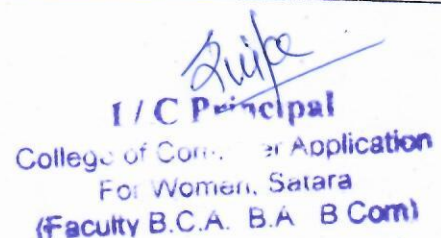 I / C Principal
College of Com... er Application
For Women, Satara
(Faculty B.C.A. B.A B Com)